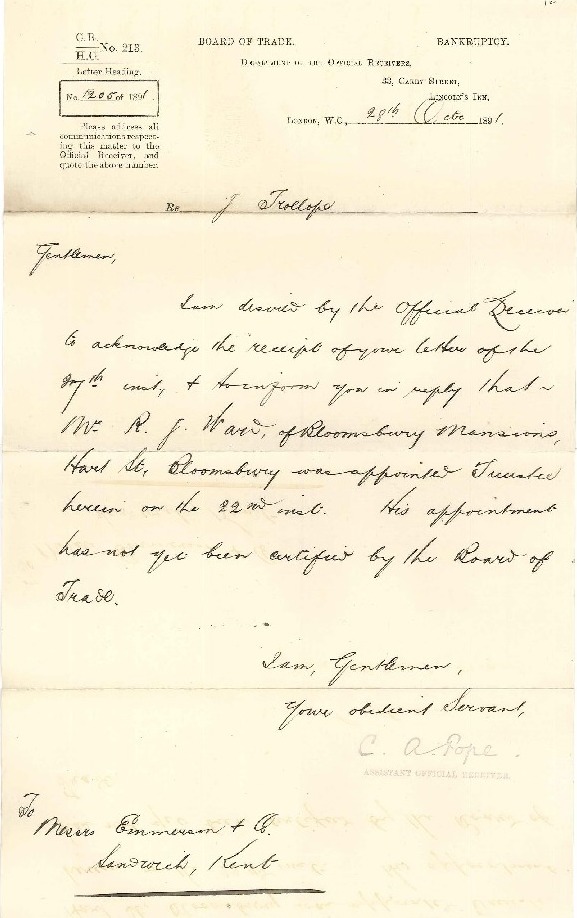 C.B.
H.O. No. 213.
Letter Heading.
No. 1205 of 1891.
Please address all
communications respect-
ing this matter to the
Official Receiver, and
quote the above number.
BOARD OF TRADE. BANKRUPTCY.
Department of the Official Receivers,
33, Carey Street,
Lincoln's Inn,
London, W.C., 28th Octr 1891.
Re J Trollope
Gentlemen,
I am desired by the Official Receiver
to acknowledge the receipt of your letter of the
27th inst, & to inform you in reply that
Mr. R. J. Ward, of Bloomsbury Mansions,
Hart St, Bloomsbury was appointed Trustee
herein on the 22nd inst. His appointment
has not yet been certified by the Board of
Trade.
I am, Gentlemen,
Your obedient Servant,
C. A Pope.
ASSISTANT OFFICIAL RECEIVER.
To
Messrs Emmerson & Co.
Sandwich, Kent